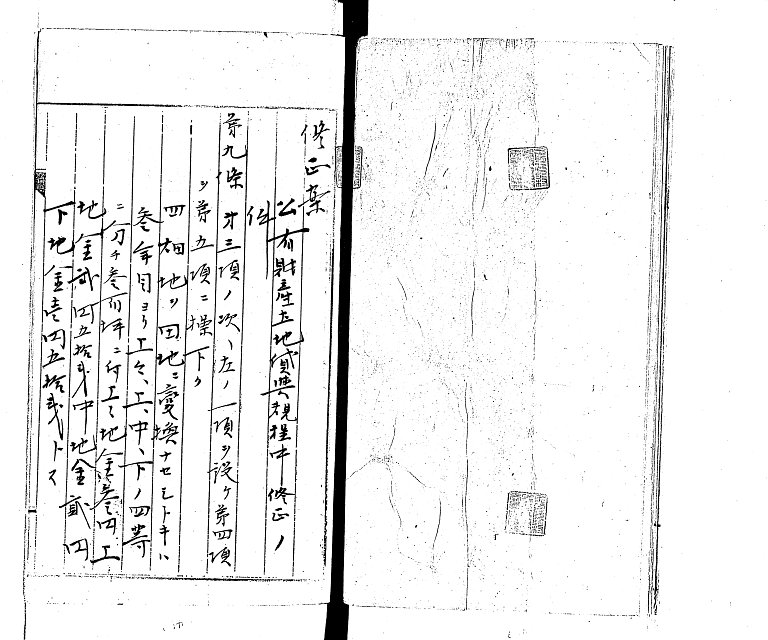 修正案
公有財産土地貸與規程中修正ノ
件
第九條 第三項ノ次ヘ左ノ一項ヲ設ケ第四項
ヲ第五項ニ操下ク
四 畑地ヲ田地ニ変換ナセシトキハ
参年目ヨリ上々、上、中、下ノ四等
ニ分チ参百坪ニ付上々地金参円上
地金貳円五拾戋中地金貳円
下地金壱円五拾戋トス